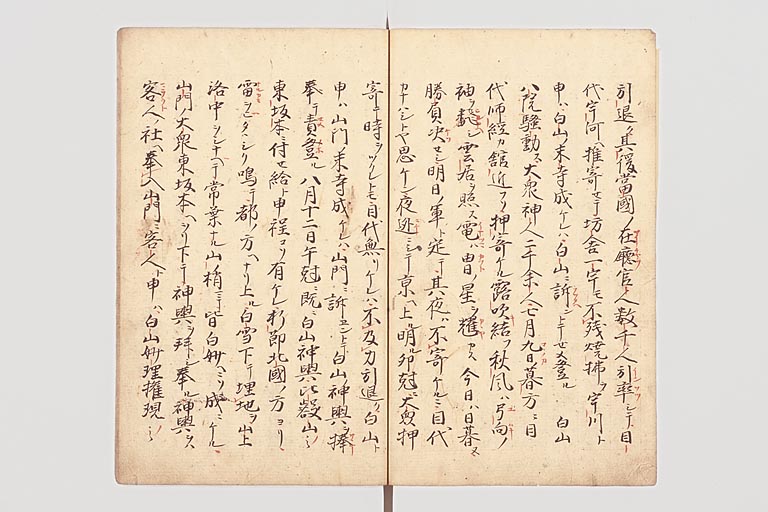 引退ク其後當國ノ在廳官人数千人引率シテ目
代宇河ヘ推寄テ坊舎一宇モ不残焼拂フ宇川ト
申ハ白山ノ末寺成ケレハ白山ニ訴ントテ登ル 白山
八院騒動ス大衆神人二千余人七月九日暮方ニ目
代師經カ舘近フソ押寄ケル露吹結フ秋風ハ弓向ノ
袖ヲ飜シ雲居ヲ照ス電ハ甲ノ星ヲ耀カス今日ハ日暮ヌ
勝負決セン明日ノ軍ト定テ其夜ハ不寄ケルニ目代
カナハシトヤ思ケン夜逃ニシテ京ヘ上ル明ル卯尅ニ大衆押
寄テ時ヲツクレトモ目代無リケレハ不及力引退ク白山ト
申ハ山門ノ末寺成ケレハ山門ニ訴ントテ白山神輿ヲ捧
奉テ責登ル八月十二日午尅ニ既ニ白山神輿ハ比叡山ノ
東坂本ニ付セ給ト申程コソ有ケレ折節北國ノ方ヨリ
雷ヲヒタヽシク鳴テ都ノ方ヘナリ上ル白雪下テ埋地ヲ山上
洛中ヲシナヘテ常葉ナル山ノ梢ニテ皆白妙ニソ成ニケル
山門大衆東坂本ヘヲリ下テ神輿ヲ拜シ奉ル神輿ヲハ
客人ノ社ヘ奉入山門ニ客人ト申ハ白山妙理權現ニ